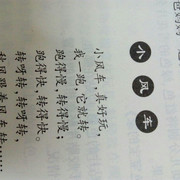 小风车
小风车，真好玩，
我一跑，它就转。
跑得慢，转得慢；
跑得快，转得快。
转呀转，转呀转，